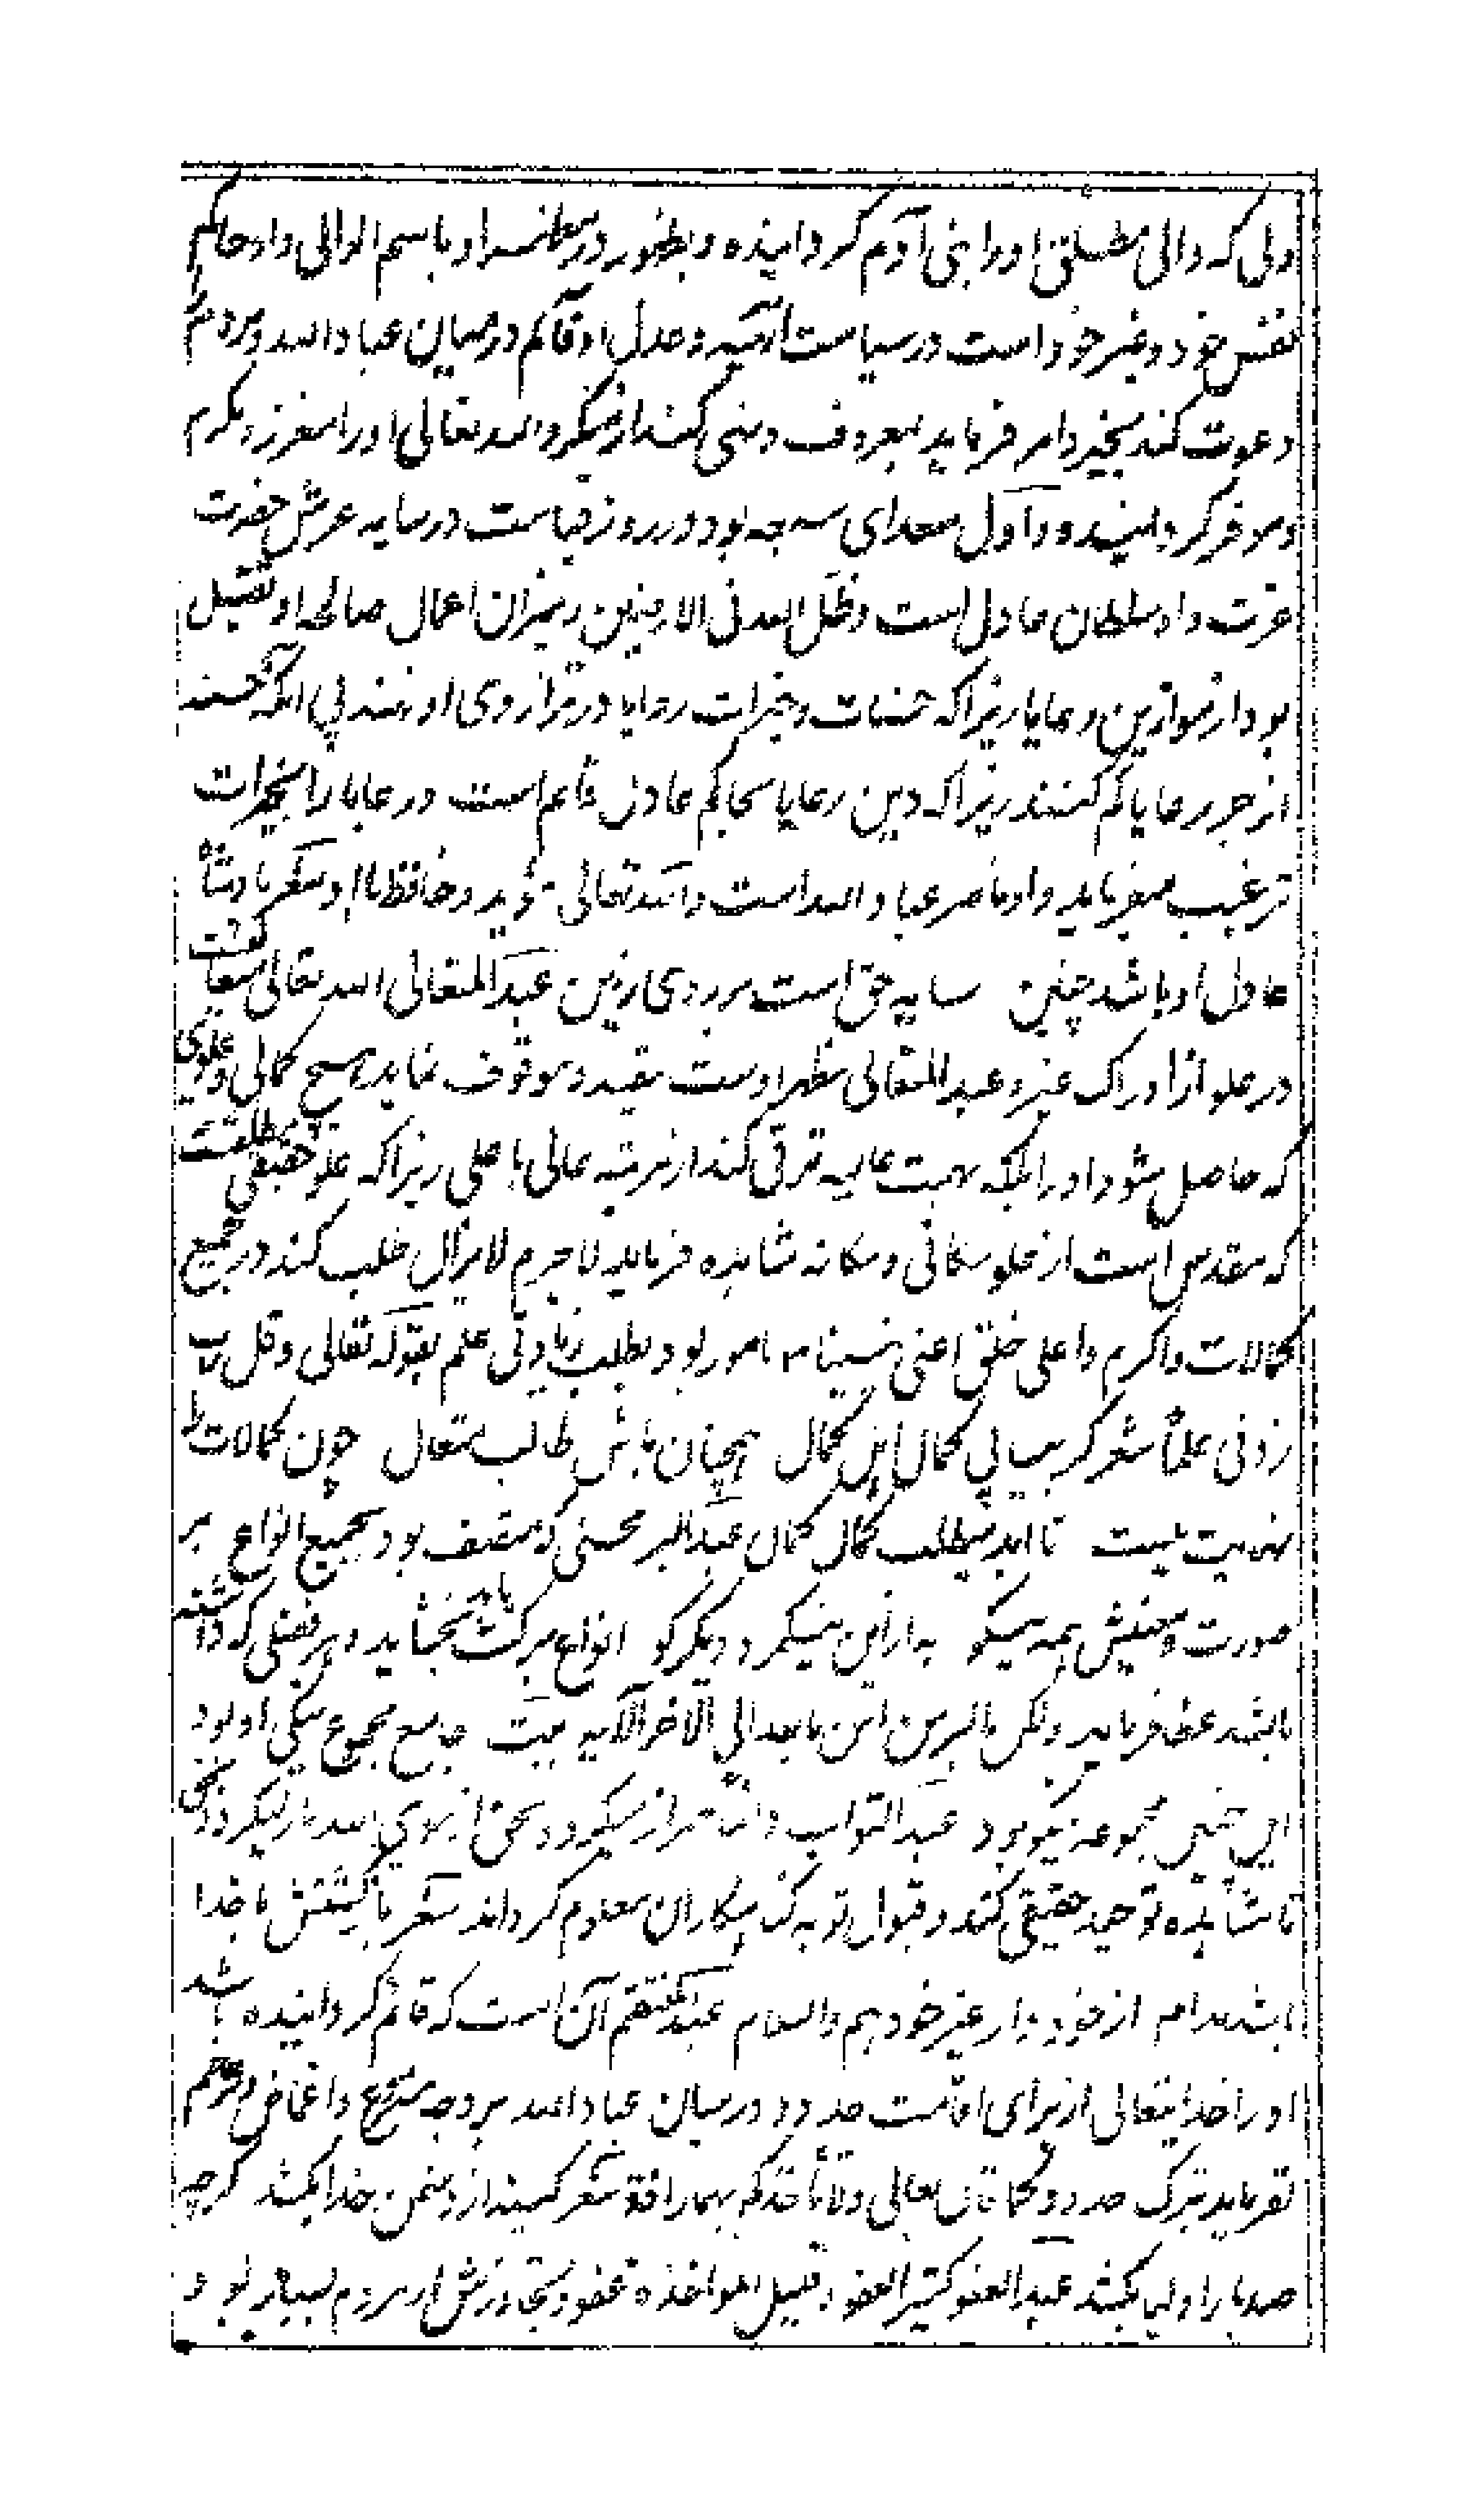 ولی که والی مطلق اورا بنی آدم گردانیده وبظهور در مظهر او باسم الوالی واو حاکم
نفس خود وغیر خود است در سیاست الهیه وعدل او قائم در میان عباد الله ومردم را
دعوت کند بخیر وامر فرماید بمعروف ونهی کند از منکر والله تعالی اورا معزز ومکرم
وموقر گردانیده واول سعدای سبعه بود در روز قیامت در سایه عرش حضرت
عزت واو سلطان عادل است وظل الله فی الارضین ومیزان اعمال صالحه او ثقیل
بود از موازین رعایا زیرا که حسنات وخیرات رعایا در ترازوی او نهند بی آنکه حسنه
از جر رعایا کم کنند زیرا که دین رعایا بحاکم عادل قائم است ورعایا را بخیرات
ترغیب میفرماید واو ناصر عباد الله است والله تعالی مؤید وحافظ او شعر پادشاه
عادل او باشد چنین سایه حق است بر روی زمین عبد المتعالی الله تعالی
در علو از ادراک غیر وعبد المتعالی مظهر اوست مقید وموقوف نماید بهیچ کمالی وعلوی
که حاصل شود اورا بلکه بهمت عالیه ترقی کند از مرتبه عالی باعلی زیرا که علو حقیقی مطلقست
که مقدس است از علو مکانی ومکانه مشاهده فرماید لاجرم لایزال طلب کند در جمیع
کمالات واکرم واعلی خلق اعنی نبینا مامور بود بطلب زیادتی علم بقوله تعالی وقل رب
زدنی علما شعر گر بیابی کمال اهل کمال همچنان باش طالب متعال چون کمالات را
نهایت نیست تا ابد میطلب کمال کمال عبد البر محسنی که متصف بود بجمیع انواع بر
صورت ومعنیش همه نیکو به ازین نیکمرد دیگر کو انواع برکت بخشاید وهر فضلی که داشته
باشد عطا فرماید ولکن البر من امن بالله والیوم الآخر الآیه بیت جامع مجموع نیکی او بود
این چنین مجموعه نیکو بود عبد التواب
تا مشاهده توحید حقیقی کند وقبول توبه گنهکاران معلوم گرداند شعر بازگشتش با خدا
باشد مدام از خود واز غیر خود هم والسلام عبد المنتقم آن است که قائم گردانیده باشد
اورا خدایتعالی از برای اقامت حدود در میان عباد الله بر وجه مشروع
نفرماید بترک حدود کما قال تعالی ولا تأخذکم بهما رافة شعر کینه از دشمن خدا بکشد گرچه
صد بار اولی بکشد عبد العفو کثیر العفو وقلیل المواخذه عفو وتجاوزش از مردم بسیار بود و